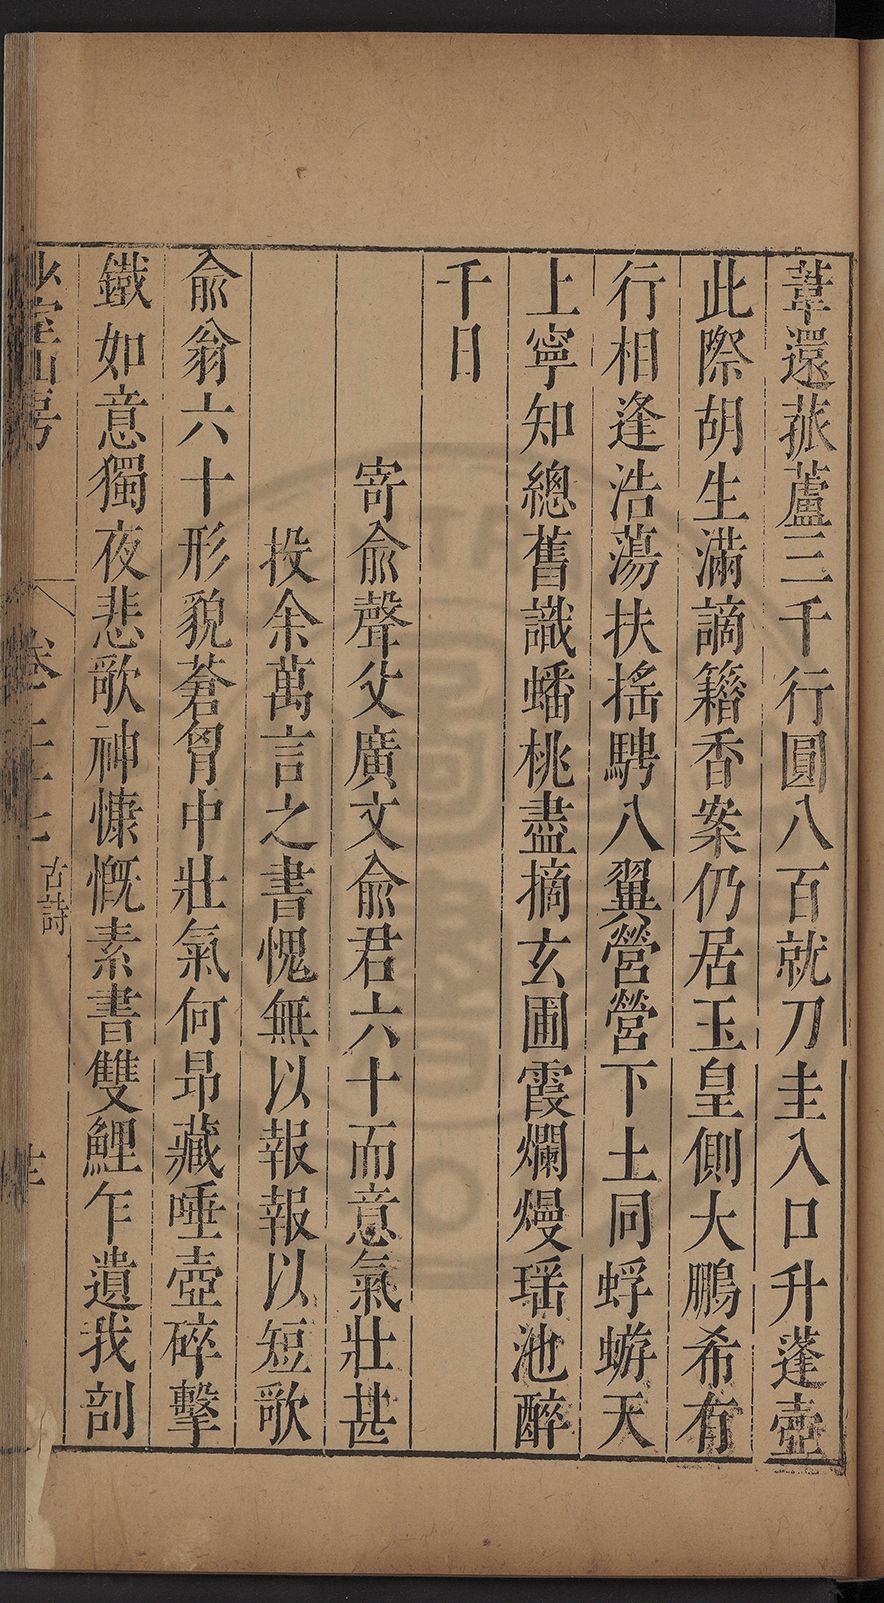 葦還菰蘆三千行圓八百就刀圭入口升蓬壺
此際胡生滿謫籍香案仍居玉皇側大鵬希有
行相逢浩蕩扶搖騁八翼營營下土同蜉蝣天
上寧知總舊識蟠桃盡摘玄圃霞爛熳瑤池醉
千日
寄俞聲父廣文俞君六十而意氣壯甚
投余萬言之書愧無以報報以短歌
俞翁六十形貌蒼胷中壯氣何昂藏唾壺碎擊
鐵如意獨夜悲歌神慷慨素書雙鯉乍遺我剖
室山房
卷二十七
古詩